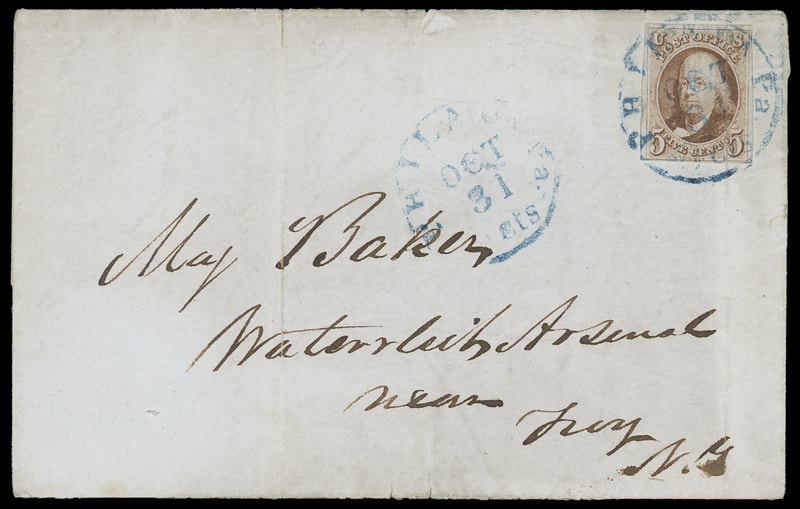 U S
POST OFFICE
FIVE CENTS
5 5
PHILADA Pa.
OCT
31
cts
Maj Baker
Watervliet Arsenal
near Troy
N.Y